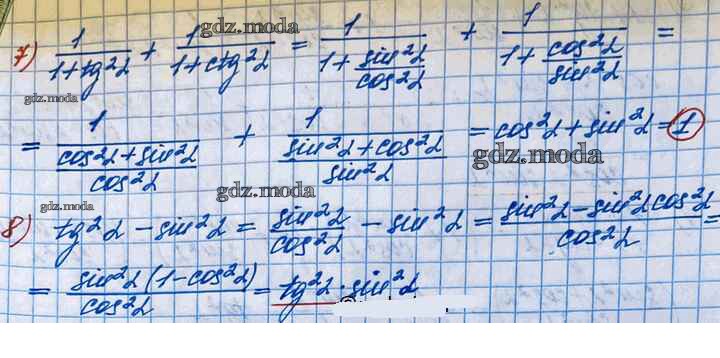 gdz.moda
7) 1/(1+tg²α) + 1/(1+ctg²α) = 1/(1+sin²α/cos²α) + 1/(1+cos²α/sin²α) =
gdz.moda
= 1/((cos²α+sin²α)/cos²α) + 1/((sin²α+cos²α)/sin²α) = cos²α+sin²α = 1
gdz.moda
gdz.moda
gdz.moda
8) tg²α - sin²α = sin²α/cos²α - sin²α = (sin²α - sin²α cos²α)/cos²α =
= sin²α(1-cos²α)/cos²α = tg²α · sin²α